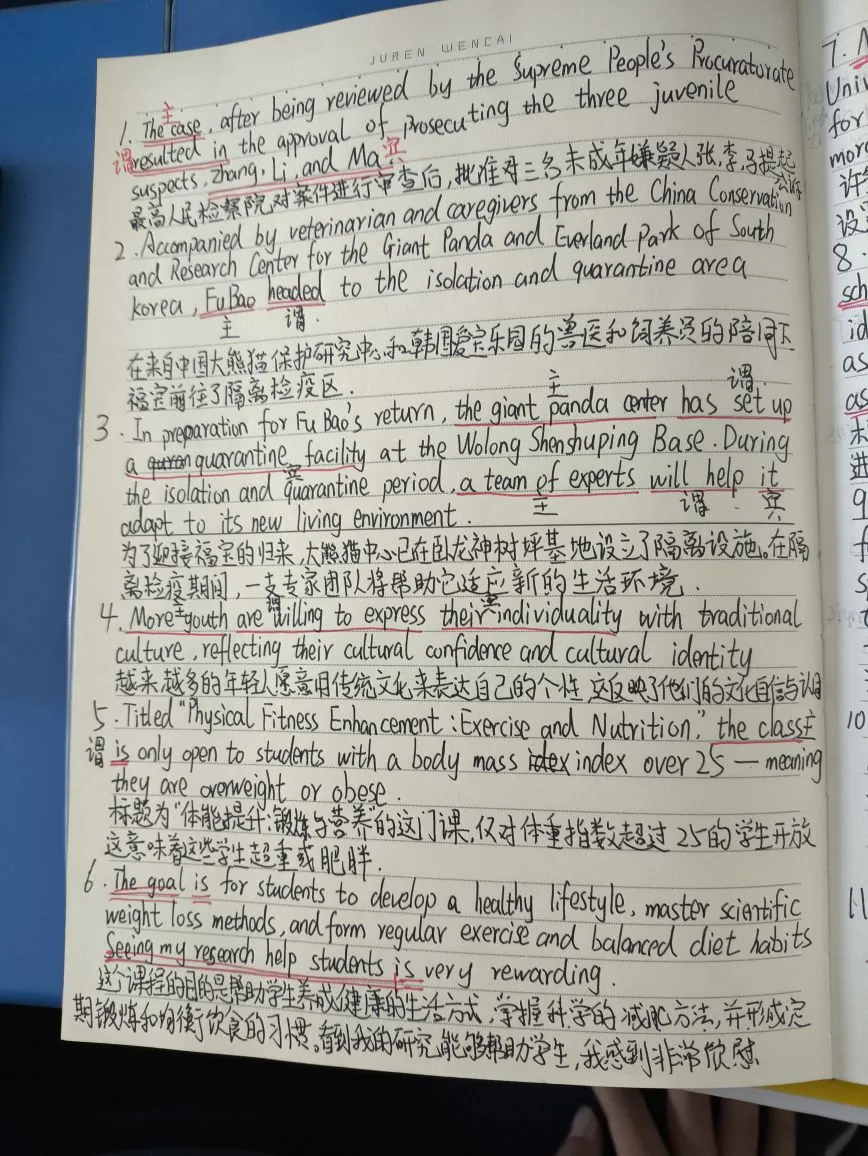 JUREN WENCAI
主
1. The case, after being reviewed by the Supreme People's Procuratorate
谓 resulted in the approval of prosecuting the three juvenile
suspects, Zhang, Li, and Ma 宾
最高人民检察院对案件进行审查后,批准对三名未成年嫌疑人张,李,马提起公诉
2. Accompanied by veterinarian and caregivers from the China Conservation
and Research Center for the Giant Panda and Everland Park of South
Korea, Fu Bao headed to the isolation and quarantine area
主 谓.
在来自中国大熊猫保护研究中心和韩国爱宝乐园的兽医和饲养员的陪同下
福宝前往了隔离检疫区.
主 谓.
3. In preparation for Fu Bao's return, the giant panda center has set up
a quarantine facility at the Wolong Shenshuping Base. During
宾
the isolation and quarantine period, a team of experts will help it
主 谓. 宾
adapt to its new living environment.
为了迎接福宝的归来,大熊猫中心已在卧龙神树坪基地设立了隔离设施。在隔
离检疫期间,一支专家团队将帮助它适应新的生活环境.
主 谓 宾
4. More youth are willing to express their individuality with traditional
culture, reflecting their cultural confidence and cultural identity
越来越多的年轻人愿意用传统文化来表达自己的个性 这反映了他们的文化自信与认同
5. Titled "Physical Fitness Enhancement: Exercise and Nutrition," the class 主
谓 is only open to students with a body mass index over 25 — meaning
they are overweight or obese.
标题为"体能提升:锻炼与营养"的这门课,仅对体重指数超过25的学生开放
这意味着这些学生超重或肥胖.
6. The goal is for students to develop a healthy lifestyle, master scientific
weight loss methods, and form regular exercise and balanced diet habits
Seeing my research help students is very rewarding.
这个课程的目的是帮助学生养成健康的生活方式,掌握科学的减肥方法,并形成定
期锻炼和均衡饮食的习惯。看到我的研究能够帮助学生,我感到非常欣慰
7.
Univ
for
mor
许
设
8.
sch
id
as
as
未
进
9
f
s
10
11